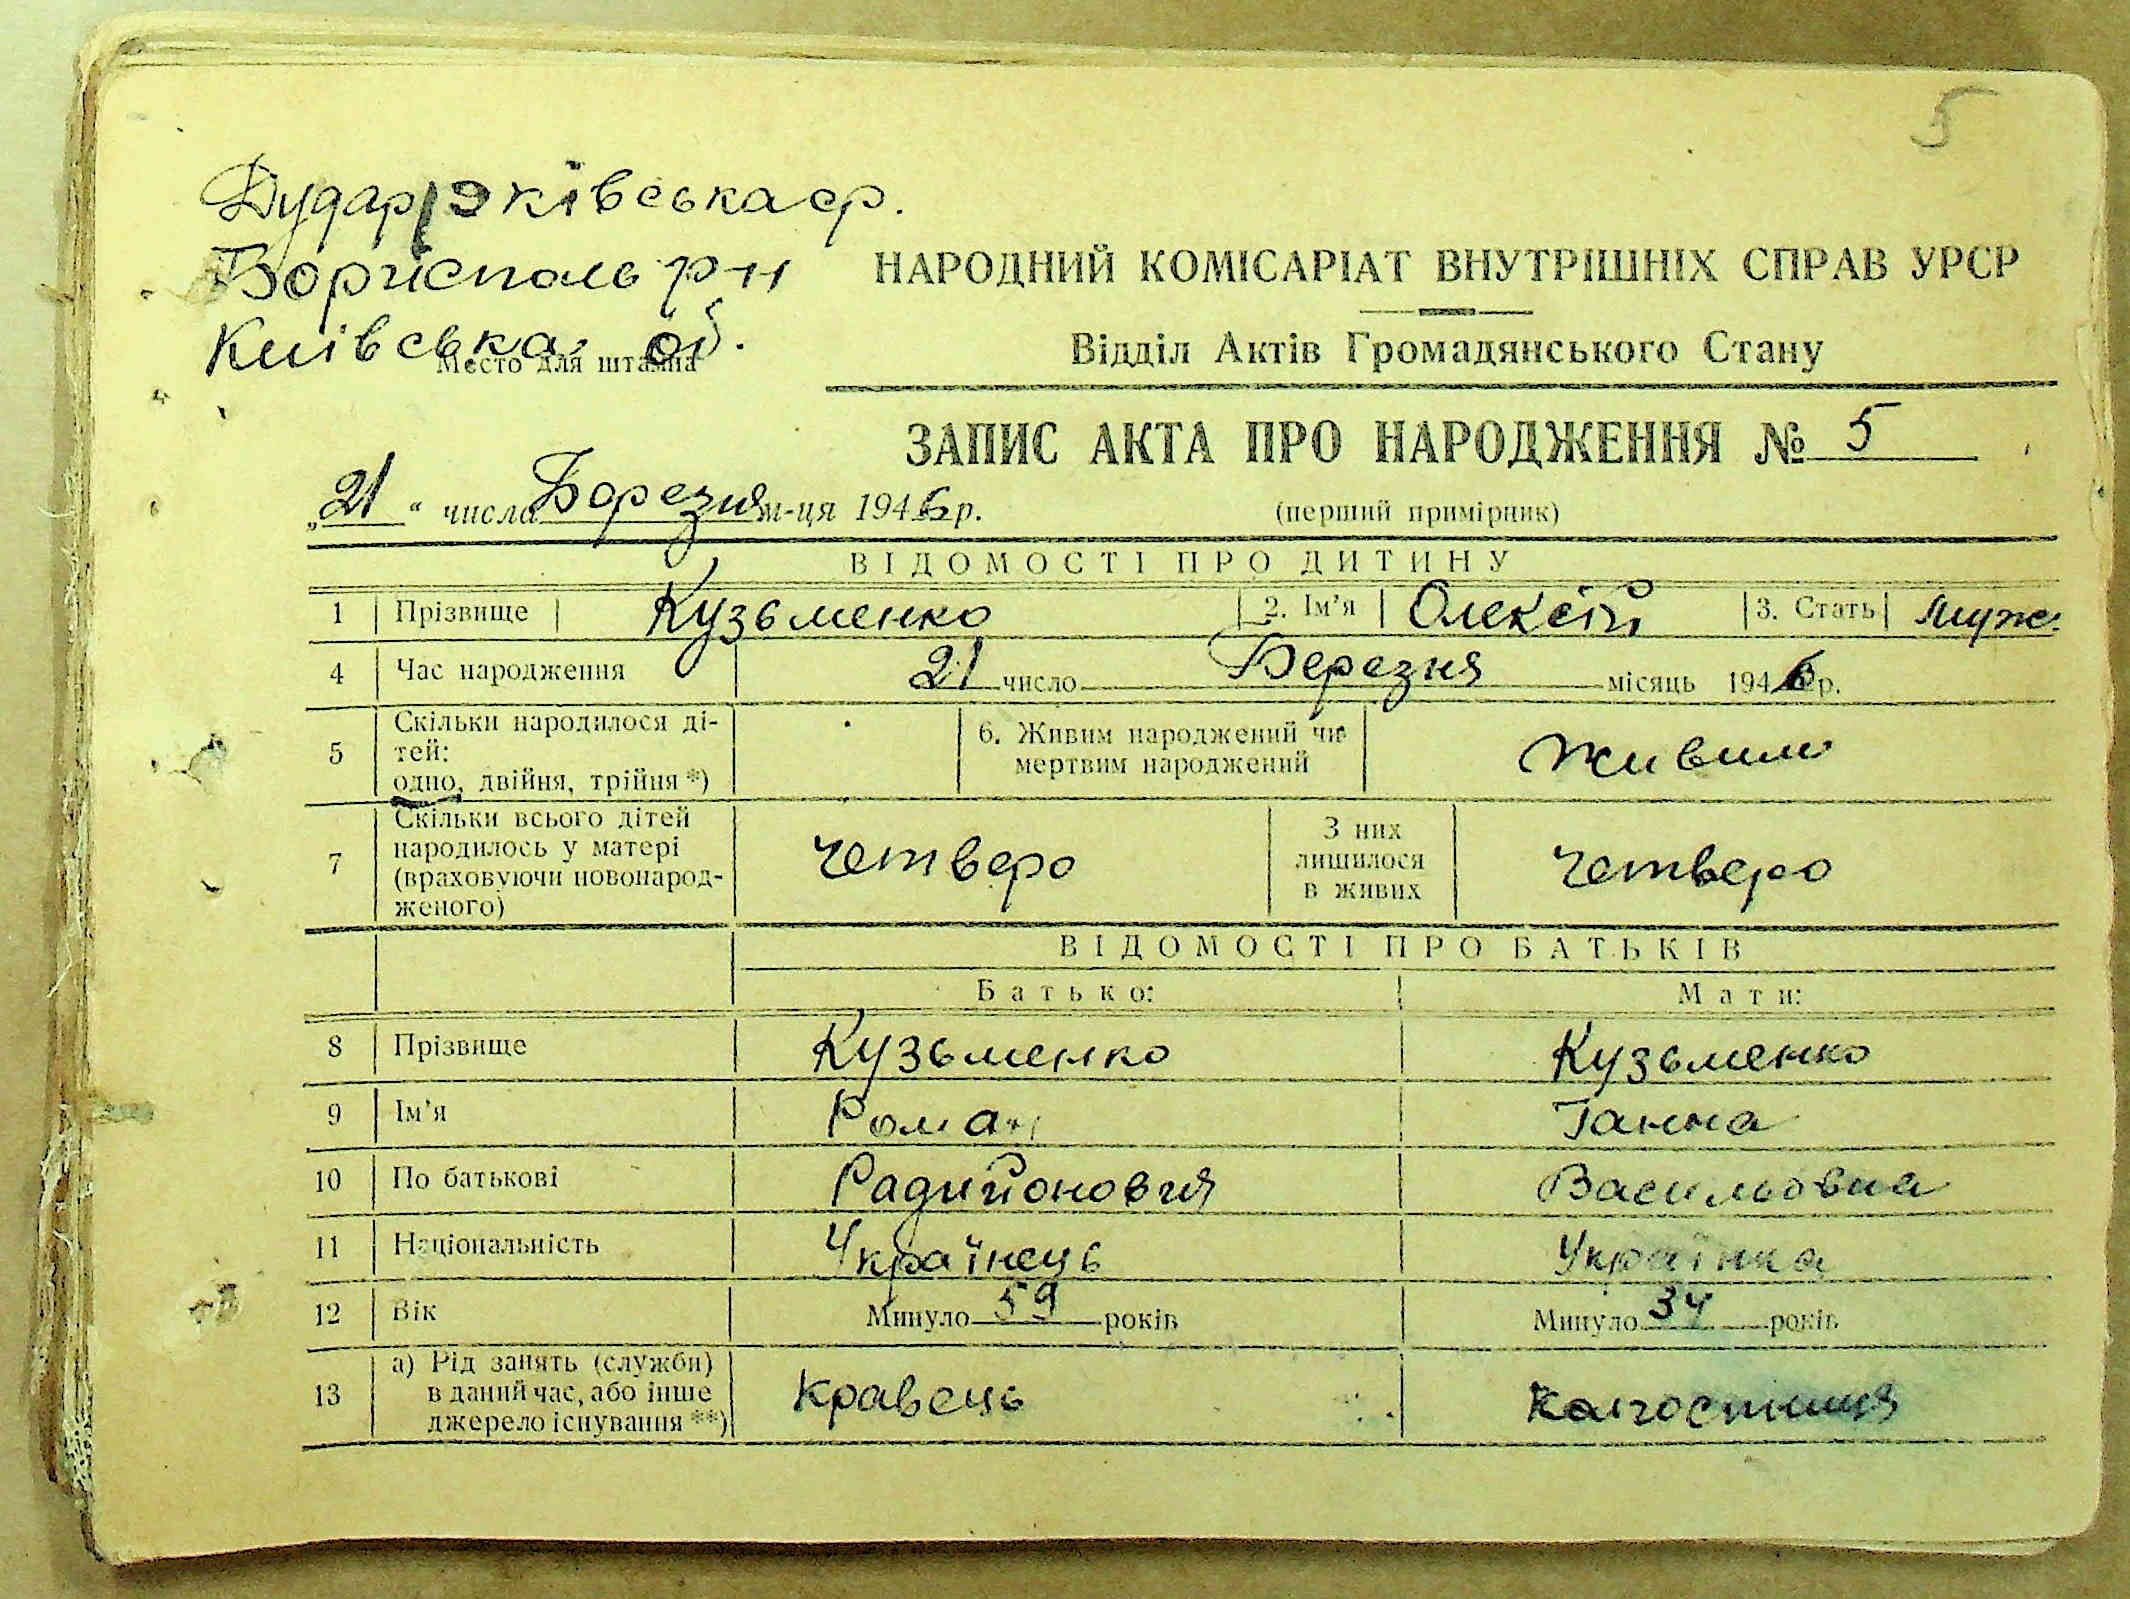 5
Дударківська ср.
Борисполь р-н
Київська об.
Место для штампа
НАРОДНИЙ КОМІСАРІАТ ВНУТРІШНІХ СПРАВ УРСР
Відділ Актів Громадянського Стану
ЗАПИС АКТА ПРО НАРОДЖЕННЯ № 5
„21“ числа Березня м-ця 1946 р. (перший примірник)
ВІДОМОСТІ ПРО ДИТИНУ
1 Прізвище Кузьменко 2. Ім’я Олексій 3. Стать муж.
4 Час народження 21 число Березня місяць 1946 р.
5 Скільки народилося ді-
тей:
одно, двійня, трійня *)
6. Живим народжений чи
мертвим народжений
живим
7 Скільки всього дітей
народилось у матері
(враховуючи новонарод-
женого)
четверо
З них
лишилося
в живих
четверо
ВІДОМОСТІ ПРО БАТЬКІВ
Батько: Мати:
8 Прізвище Кузьменко Кузьменко
9 Ім’я Роман Ганна
10 По батькові Радийонович Васильовна
11 Національність Українець Українка
12 Вік Минуло 59 років Минуло 34 років
13 а) Рід занять (служби)
в даний час, або інше
джерело існування **)
кравець колгостниця